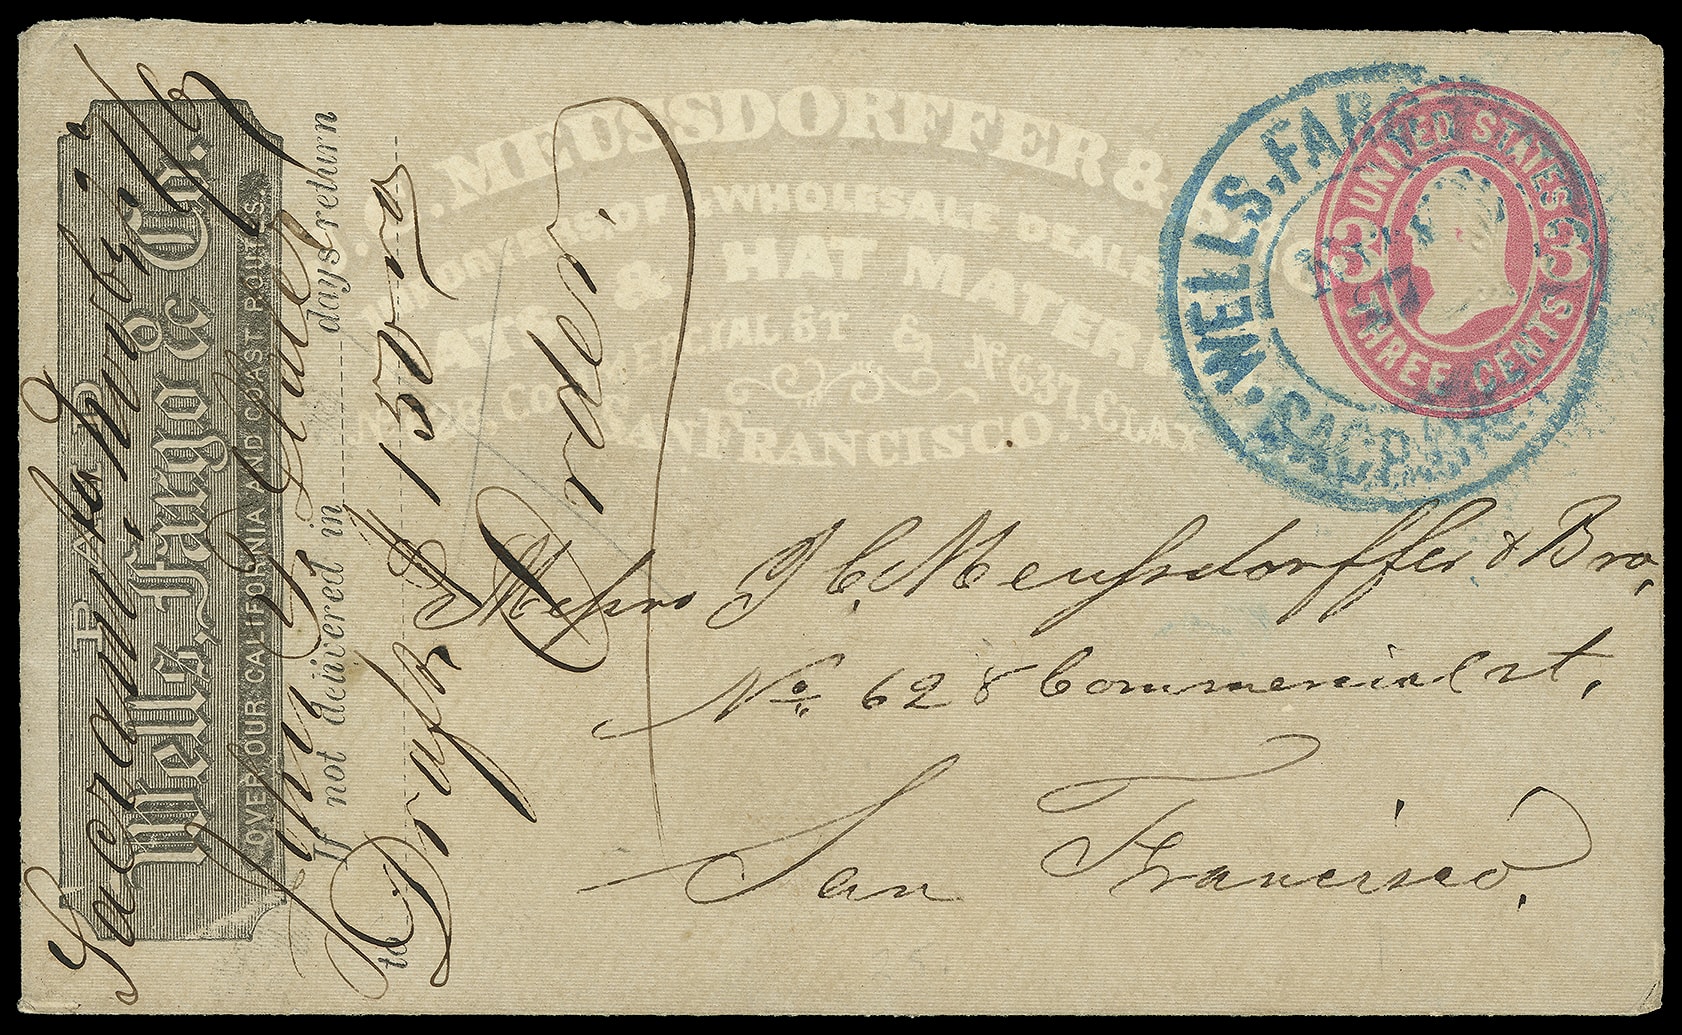 PAID
Wells, Fargo & Co.
OVER OUR CALIFORNIA AND COAST ROUTES.
If not delivered in days return
to
Sacramento
Draft $ 150
Order
C. MEUSSDORFFER & BRO.
IMPORTERS OF & WHOLESALE DEALERS
HATS & HAT MATERIALS
No 628. COMMERCIAL ST & No 637, CLAY
SAN FRANCISCO.
WELLS, FARGO
SACRAMENTO
UNITED STATES
3 3
THREE CENTS
Messrs J C. Meussdorffer & Bro,
No. 628 Commercial st,
San Francisco,